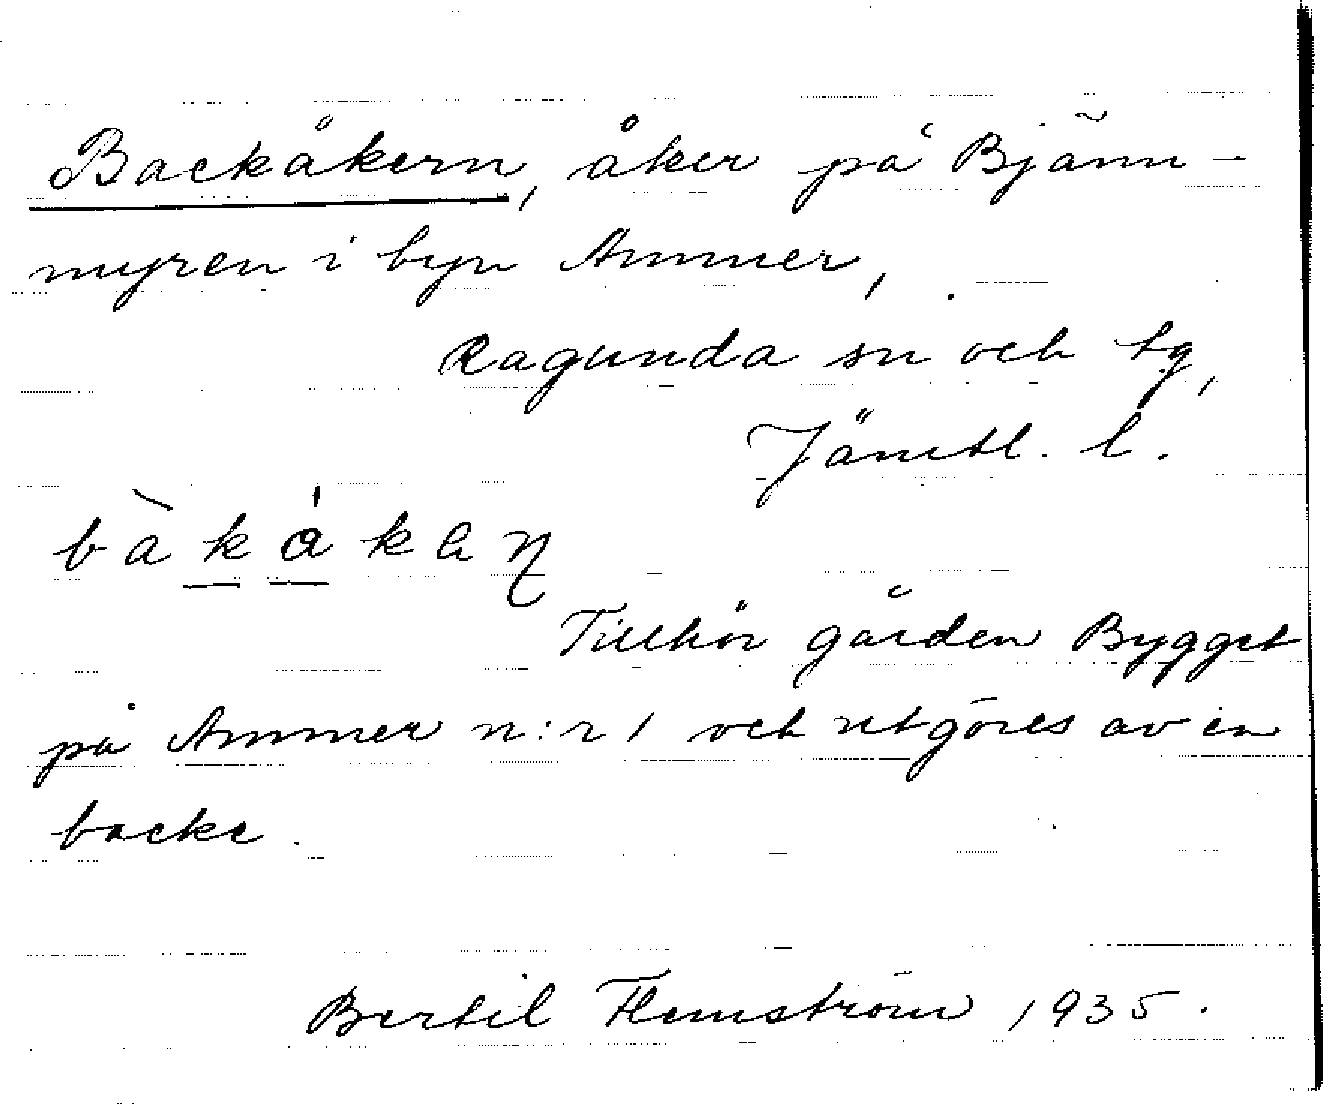 Backåkern, åker på Bjänn-
myren i byn Ammer,
Ragunda sn och tg,
Jämtl. l.
bàkåkaɳ
Tillhör gården Bygget
på Ammer n:r 1 och utgöres av en
backe.
Bertil Flemström 1935.